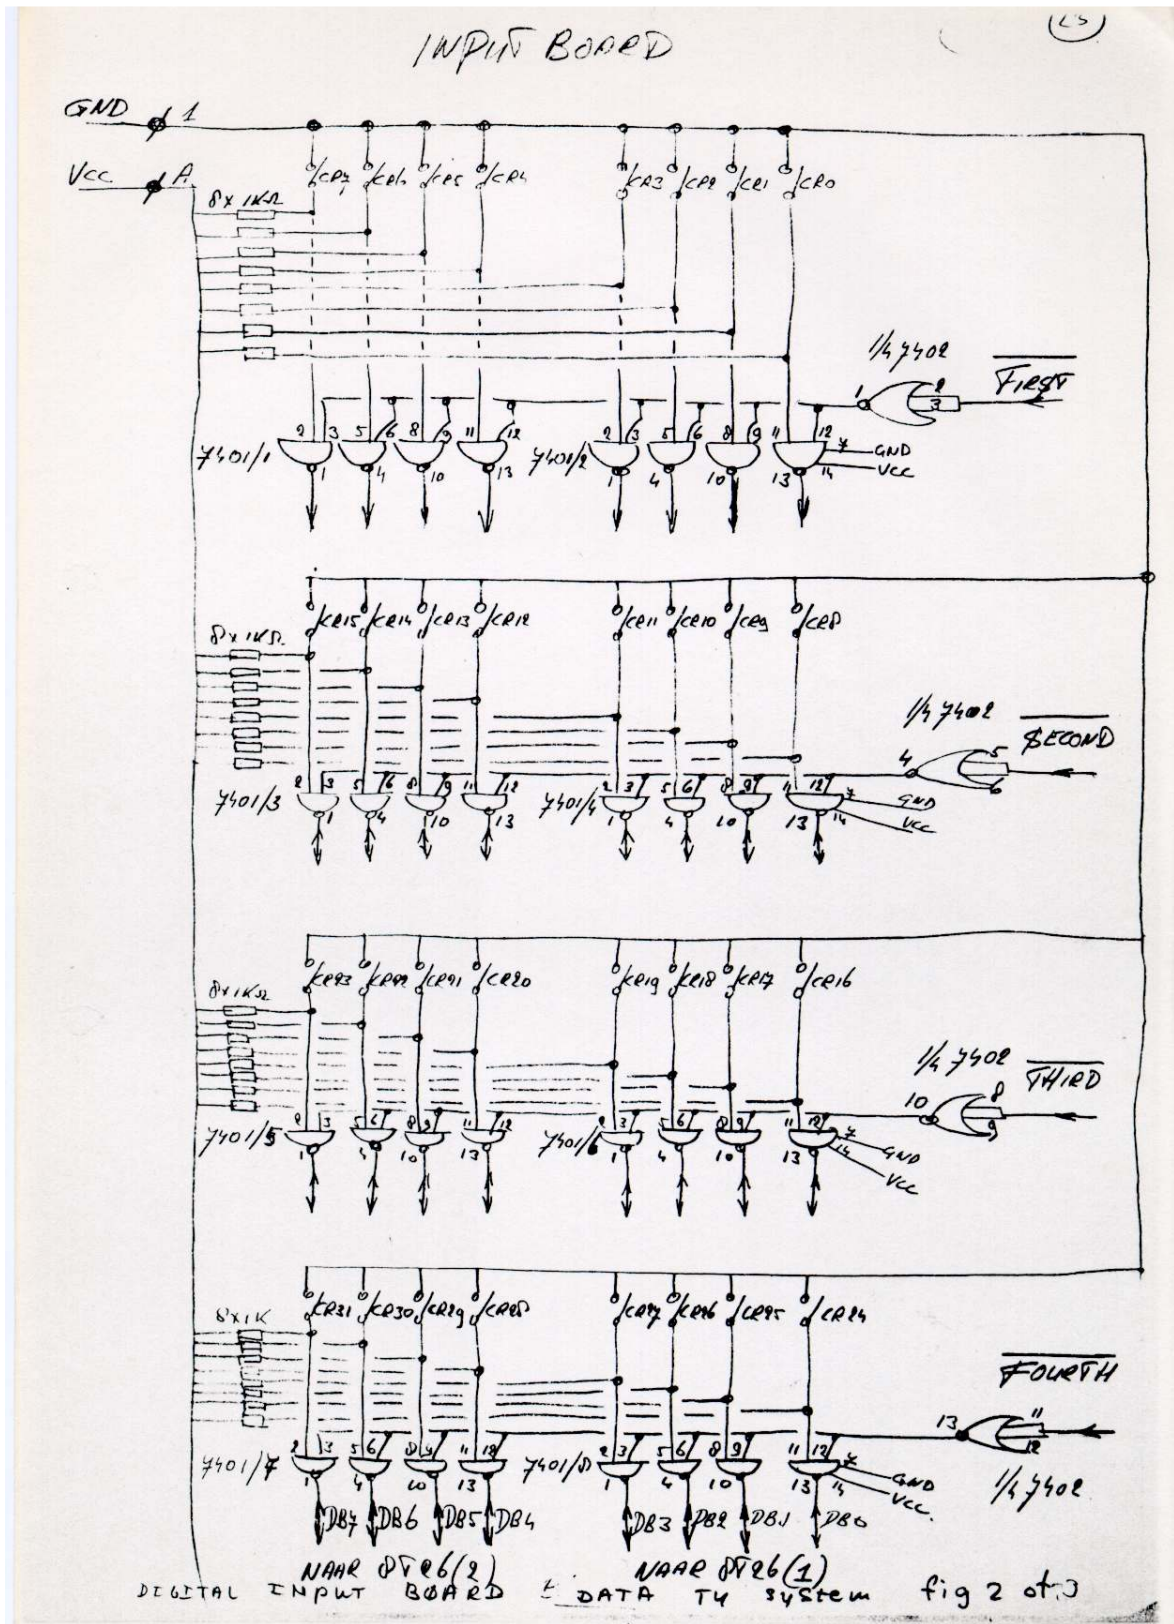 23
INPUT BOARD
GND 1
VCC A
CR7 CR6 CR5 CR4 CR3 CR2 CR1 CR0
8x 1KΩ
1/4 7402
FIRST
1 2
3
2 3 5 6 8 9 11 12 2 3 5 6 8 9 11 12
7401/1 7401/2 7 GND
14 VCC
1 4 10 13 1 4 10 13
CR15 CR14 CR13 CR12 CR11 CR10 CR9 CR8
8x 1KΩ
1/4 7402
SECOND
4 5
6
2 3 5 6 8 9 11 12 2 3 5 6 8 9 11 12
7401/3 7401/4 7 GND
14 VCC
1 4 10 13 1 4 10 13
CR23 CR22 CR21 CR20 CR19 CR18 CR17 CR16
8x1KΩ
1/4 7402
THIRD
10 8
9
2 3 5 6 8 9 11 12 2 3 5 6 8 9 11 12
7401/5 7401/6 7 GND
14 VCC
1 4 10 13 1 4 10 13
CR31 CR30 CR29 CR28 CR27 CR26 CR25 CR24
8x1K
FOURTH
13 11
12
1/4 7402
2 3 5 6 8 9 11 12 2 3 5 6 8 9 11 12
7401/7 7401/8 7 GND
14 VCC.
1 4 10 13 1 4 10 13
DB7 DB6 DB5 DB4 DB3 DB2 DB1 DB0
NAAR 8T26(2) NAAR 8T26(1)
DIGITAL INPUT BOARD DATA TU system fig 2 of 3